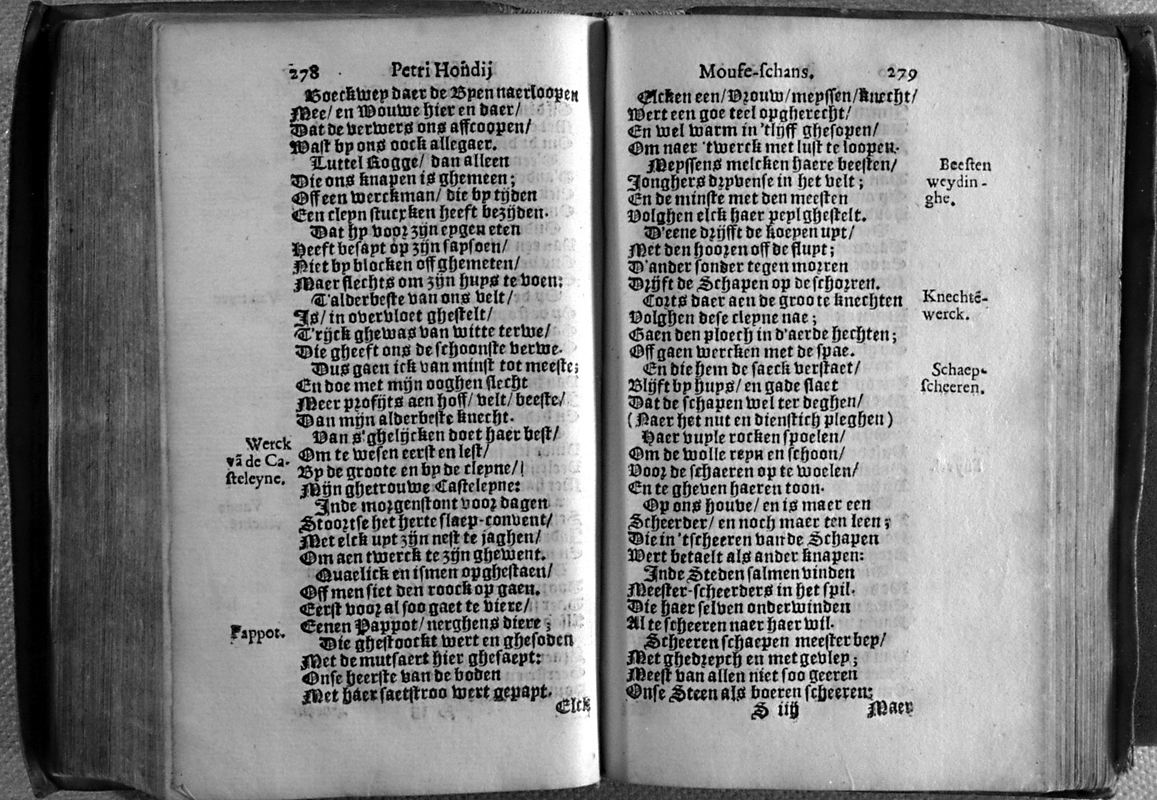 278 Petri Hondij
Boeckwey daer de Byen naerloopen
Mee/ en Wouwe hier en daer/
Dat de verwers ons affcoopen/
Wast by ons oock allegaer.
Luttel Rogge/ dan alleen
Die ons knapen is ghemeen;
Off een werckman/ die by tijden
Een cleyn stucxken heeft bezijden.
Dat hy voor zijn eygen eten
Heeft besayt op zijn saysoen/
Niet by blocken off ghemeten/
Maer slechts om zijn huys te voen:
T'alderbeste van ons velt/
Is/ in overvloet ghestelt/
T'rijck ghewas van witte terwe/
Die gheeft ons de schoonste verwe.
Dus gaen ick van minst tot meeste;
En doe met mijn ooghen slecht
Meer profijts aen hoff/ velt/ beeste/
Dan mijn alderbeste knecht.
Werck
vā de Ca-
steleyne.
Van s'ghelijcken doet haer best/
Om te wesen eerst en lest/
By de groote en by de cleyne/
Mijn ghetrouwe Casteleyne:
Inde morgenstont voor dagen
Stoortse het herte slaep-convent/
Met elck upt zijn nest te jaghen/
Om aen twerck te zijn ghewent.
Quaelick en ismen opghestaen/
Off men siet den roock op gaen.
Eerst voor al soo gaet te viere/
Pappot.
Eenen Pappot/ nerghens diere;
Die ghestoockt wert en ghesoden
Met de mutsaert hier ghesaept:
Onse heerste van de boden
Met haer saetstroo wert gepapt.
Elck
Mouse-schans. 279
Elcken een/ Vrouw/ meyssen/ knecht/
Wert een goe teel opgherecht/
En wel warm in 'tlijff ghesopen/
Om naer 'twerck met lust te loopen.
Meyssens melcken haere beesten/
Beesten
weydin-
ghe.
Jonghers dryvense in het velt;
En de minste met den meesten
Volghen elck haer peyl ghestelt.
D'eene drijfft de koeyen upt/
Met den hooren off de fluyt;
D'ander sonder tegen morren
Drijft de Schapen op de schorren.
Corts daer aen de groote knechten
Knechtē-
werck.
Volghen dese cleyne nae;
Gaen den ploech in d'aerde hechten;
Off gaen wercken met de spae.
En die hem de saeck verstaet/
Schaep-
scheeren.
Blijft by huys/ en gade slaet
Dat de schapen wel ter deghen/
(Naer het nut en dienstich pleghen)
Haer vuyle rocken spoelen/
Om de wolle reyn en schoon/
Voor de schaeren op te woelen/
En te gheven haeren toon.
Op ons houve/ en is maer een
Scheerder/ en noch maer ten leen;
Die in 'tscheeren van de Schapen
Wert betaelt als ander knapen:
Inde Steden salmen vinden
Meester-scheerders in het spil.
Die haer selven onderwinden
Al te scheeren naer haer wil.
Scheeren schaepen meester bey/
Met ghedreych en met gevley;
Meest van allen niet soo geeren
Onse Steen als boeren scheeren:
S iij Maer